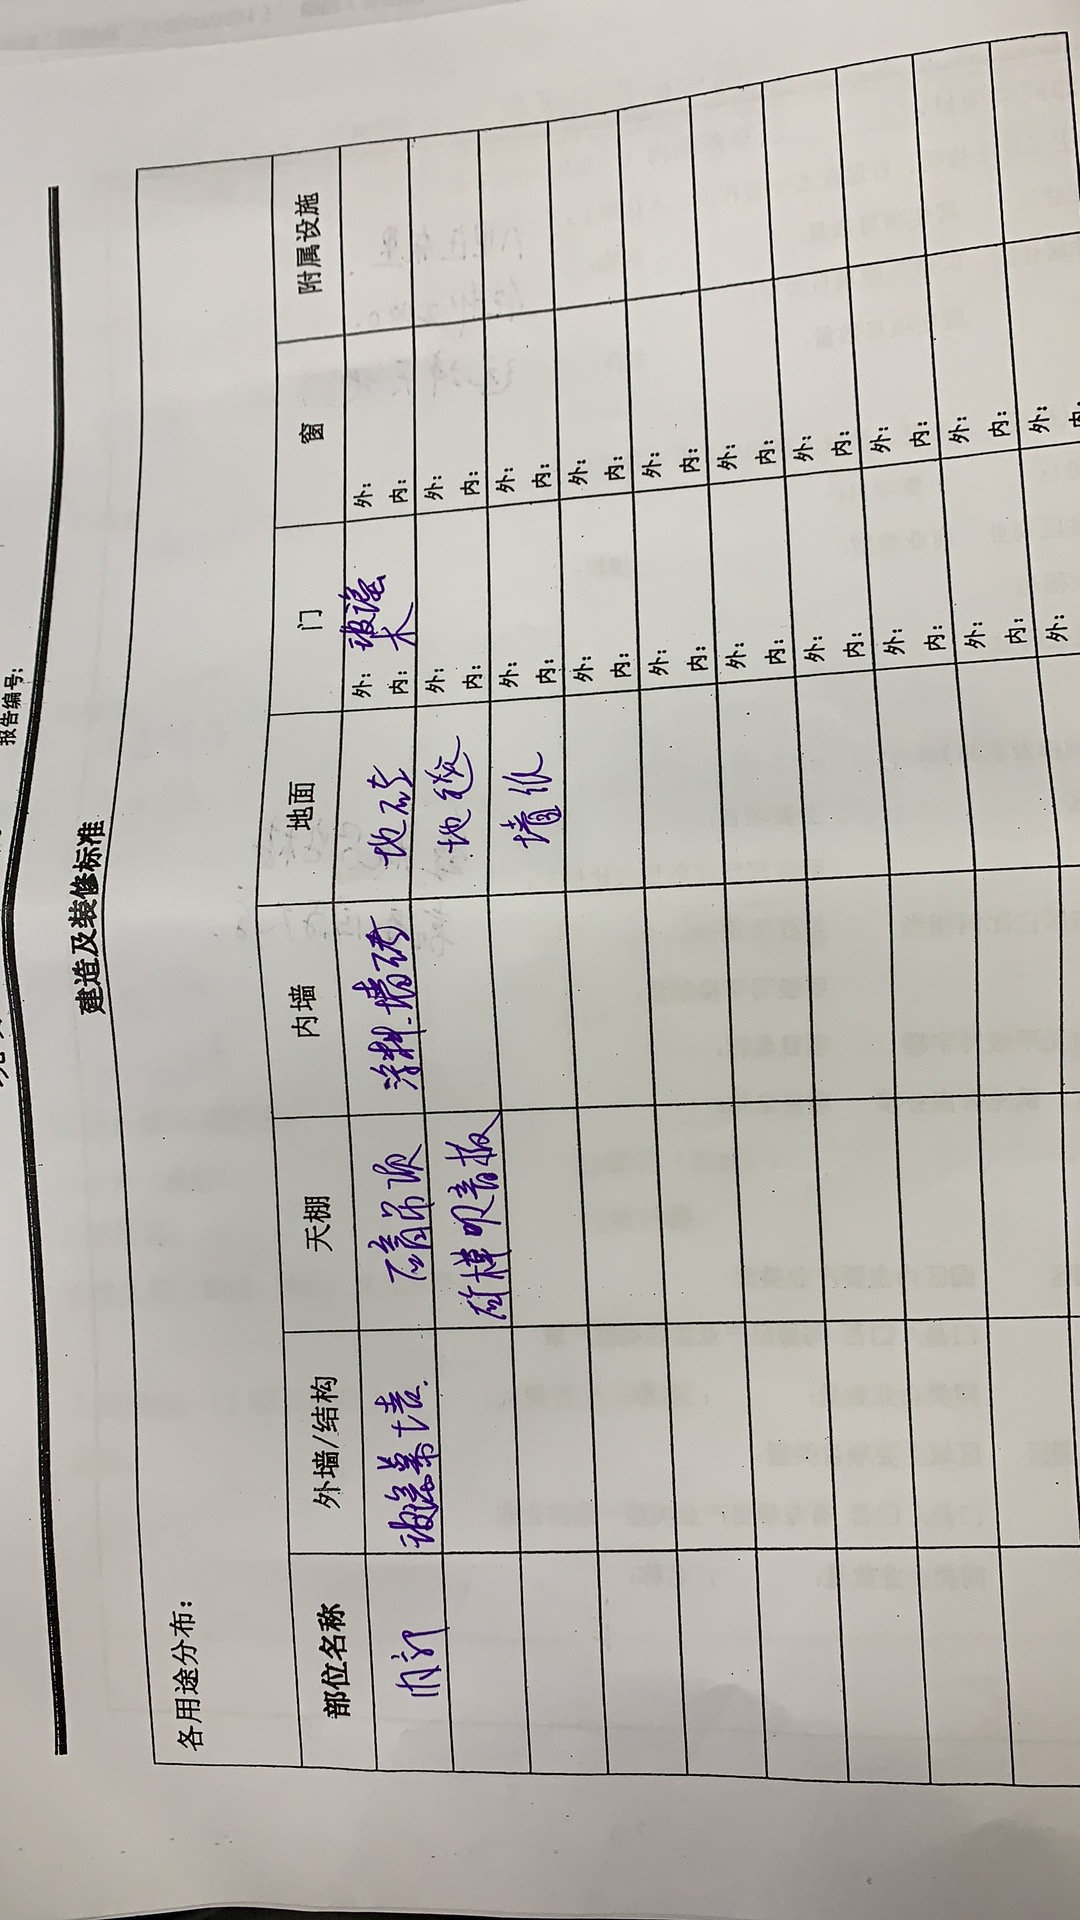 报告编号:
建造及装修标准
各用途分布:
部位名称 外墙/结构 天棚 内墙 地面 门 窗 附属设施
内部 玻璃幕墙 石膏吊顶 涂料、墙砖 地砖 外: 玻璃 外:
内: 木 内:
吸音板 地毯 外: 外:
内: 内:
墙纸 外: 外:
内: 内:
外: 外:
内: 内:
外: 外:
内: 内:
外: 外:
内: 内:
外: 外:
内: 内:
外: 外:
内: 内:
外: 外:
内: 内:
外: 外:
内: